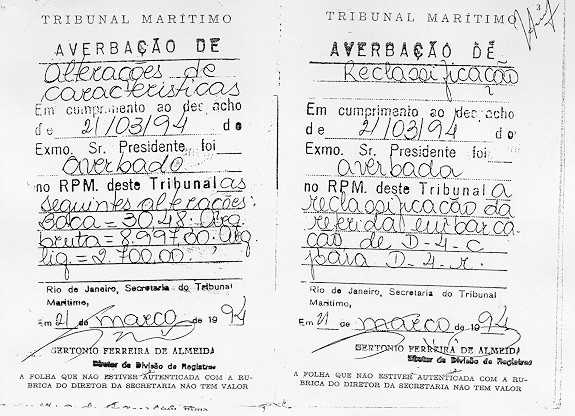 TRIBUNAL MARÍTIMO
AVERBAÇÃO DE
Alterações de
características
Em cumprimento ao des acho
de 21/03/94 do
Exmo. Sr. Presidente foi
averbado
no RPM. deste Tribunal as
seguintes alterações:
Boca = 30.48. Arq.
bruta = 8.997,00. Arq.
liq. = 2.700.00
Rio de Janeiro, Secretaria do Tribunal
Marítimo,
Em 21 de março de 19 94
SERTONIO FERREIRA DE ALMEIDA
Diretor de Divisão de Registros
A FOLHA QUE NÃO ESTIVER AUTENTICADA COM A RU-
BRICA DO DIRETOR DA SECRETARIA NÃO TEM VALOR
3
TRIBUNAL MARÍTIMO
AVERBAÇÃO DE
Reclassificação
Em cumprimento ao des acho
de 21/03/94 do
Exmo. Sr. Presidente foi
averbada
no RPM. deste Tribunal a
reclassificação da
referida embarca
cão de D-4-C
para D-4-r.
Rio de Janeiro, Secretaria do Tribunal
Marítimo,
Em 21 de março de 19 94
SERTONIO FERREIRA DE ALMEIDA
Diretor de Divisão de Registros
A FOLHA QUE NÃO ESTIVER AUTENTICADA COM A RU-
BRICA DO DIRETOR DA SECRETARIA NÃO TEM VALOR